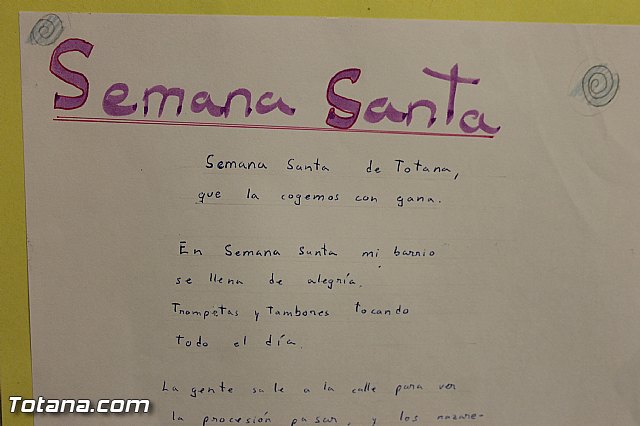 Semana Santa
Semana Santa de Totana,
que la cogemos con gana.
En Semana Santa mi barrio
se llena de alegría.
Trompetas y Tambores tocando
todo el día.
La gente sale a la calle para ver
la procesión pasar, y los nazare-
Totana.com